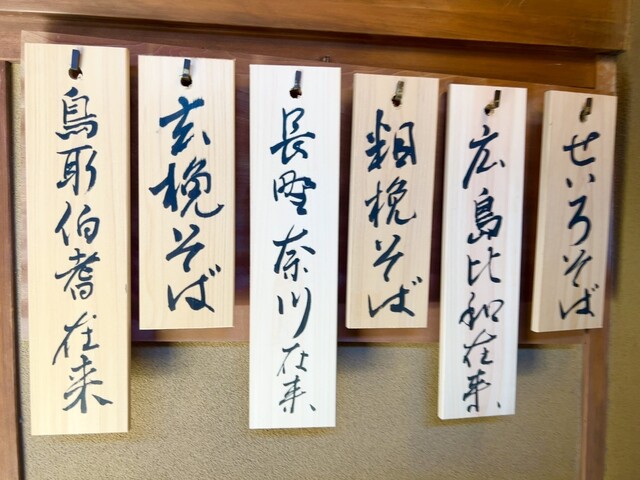 せいろそば
広島比和在来
粗挽そば
長野奈川在来
玄挽そば
鳥取伯耆在来